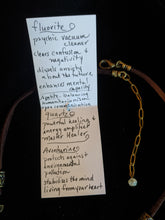 fluorite
psychic vacuum
cleaner
clears confusion &
negativity
dispels anxiety
about the future,
enhances mental
capacity
quartz
powerful healing &
energy amplifier
master Healer
Aventurine
protects against
environmental
pollution
stabilizes the mind
living from your heart